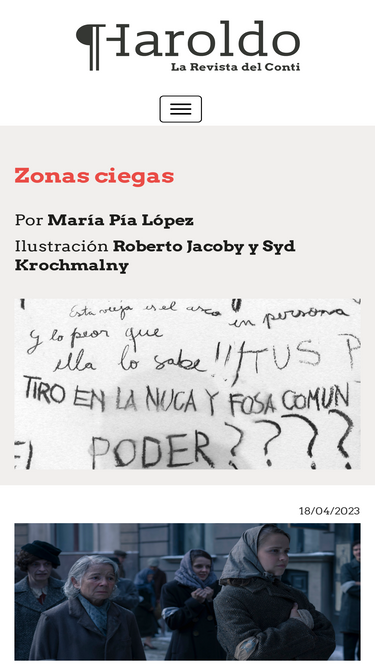 Haroldo
La Revista del Conti
Zonas ciegas
Por María Pía López
Ilustración Roberto Jacoby y Syd
Krochmalny
Esta vieja es el asco en persona
y lo peor que
ella lo sabe!!
TUS P
TIRO EN LA NUCA Y FOSA COMUN
PODER????
18/04/2023